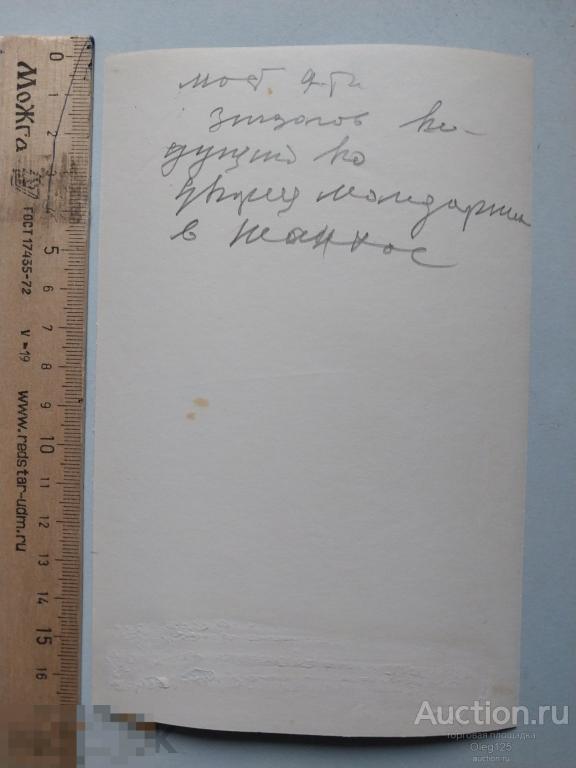 мост 9-ти
зигзагов ве-
дущий ко
дворец мандарина
в Шанхае
0
1
2
3
4
5
6
7
8
9
10
11
12
13
14
15
16
МоЖга
ГОСТ 17435-72
v =19
www.redstar-udm.ru
Auction.ru
торговая площадка
Oleg125
auction.ru